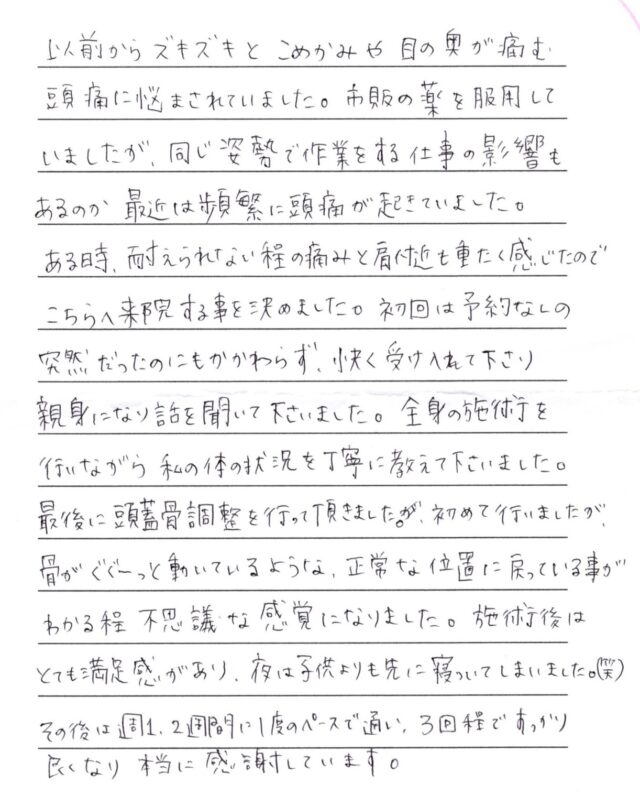 以前からズキズキと こめかみや 目の奥が痛む
頭痛に悩まされていました。市販の薬を服用して
いましたが、同じ姿勢で作業をする仕事の影響も
あるのか 最近は頻繁に頭痛が起きていました。
ある時、耐えられない程の痛みと肩付近も重たく感じたので
こちらへ来院する事を決めました。初回は予約なしの
突然だったのにもかかわらず、快く受け入れて下さり
親身になり話を聞いて下さいました。全身の施術を
行いながら 私の体の状況を丁寧に教えて下さいました。
最後に頭蓋骨調整を行って頂きましたが、初めて行いましたが、
骨がぐぐーっと動いているような、正常な位置に戻っている事が
わかる程 不思議な感覚になりました。施術後は
とても満足感があり、夜は子供よりも先に寝ついてしまいました。(笑)
その後は週1、2週間に1度のペースで通い、3回程ですっかり
良くなり 本当に感謝しています。